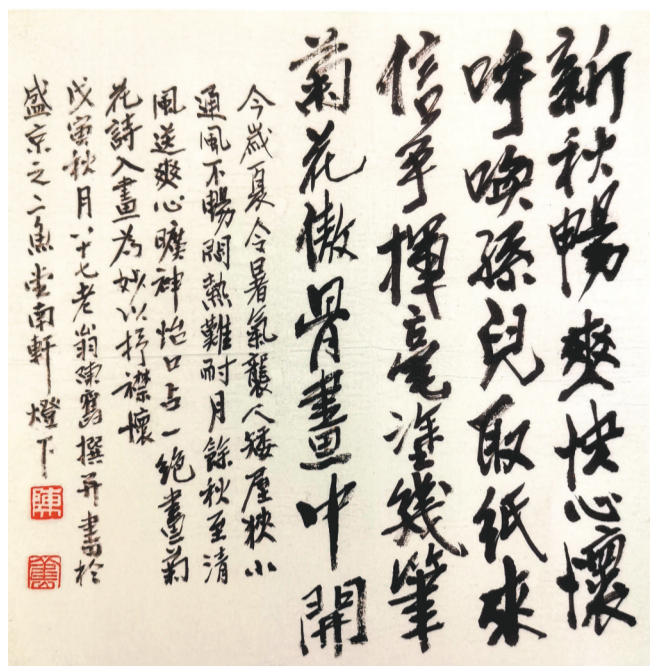 新秋暢爽快心懷
呼喚孫兒取紙來
信手揮毫塗幾筆
菊花傲骨畫中開
今歲夏令暑氣襲人矮屋狹小
通風不暢悶熱難耐月餘秋至清
風送爽心曠神怡口占一絕畫菊
花詩入畫為妙以抒襟懷
戊寅秋月八十七老翁陳撰并書於
盛京之二魚堂南軒燈下
陳